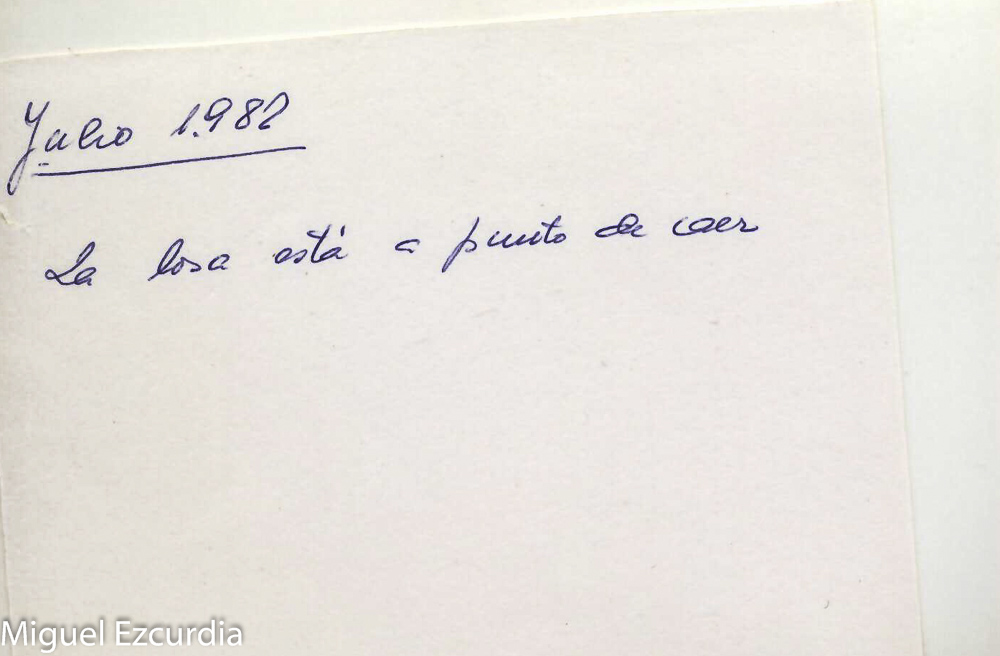 Julio 1.982
La losa está a punto de caer
Miguel Ezcurdia